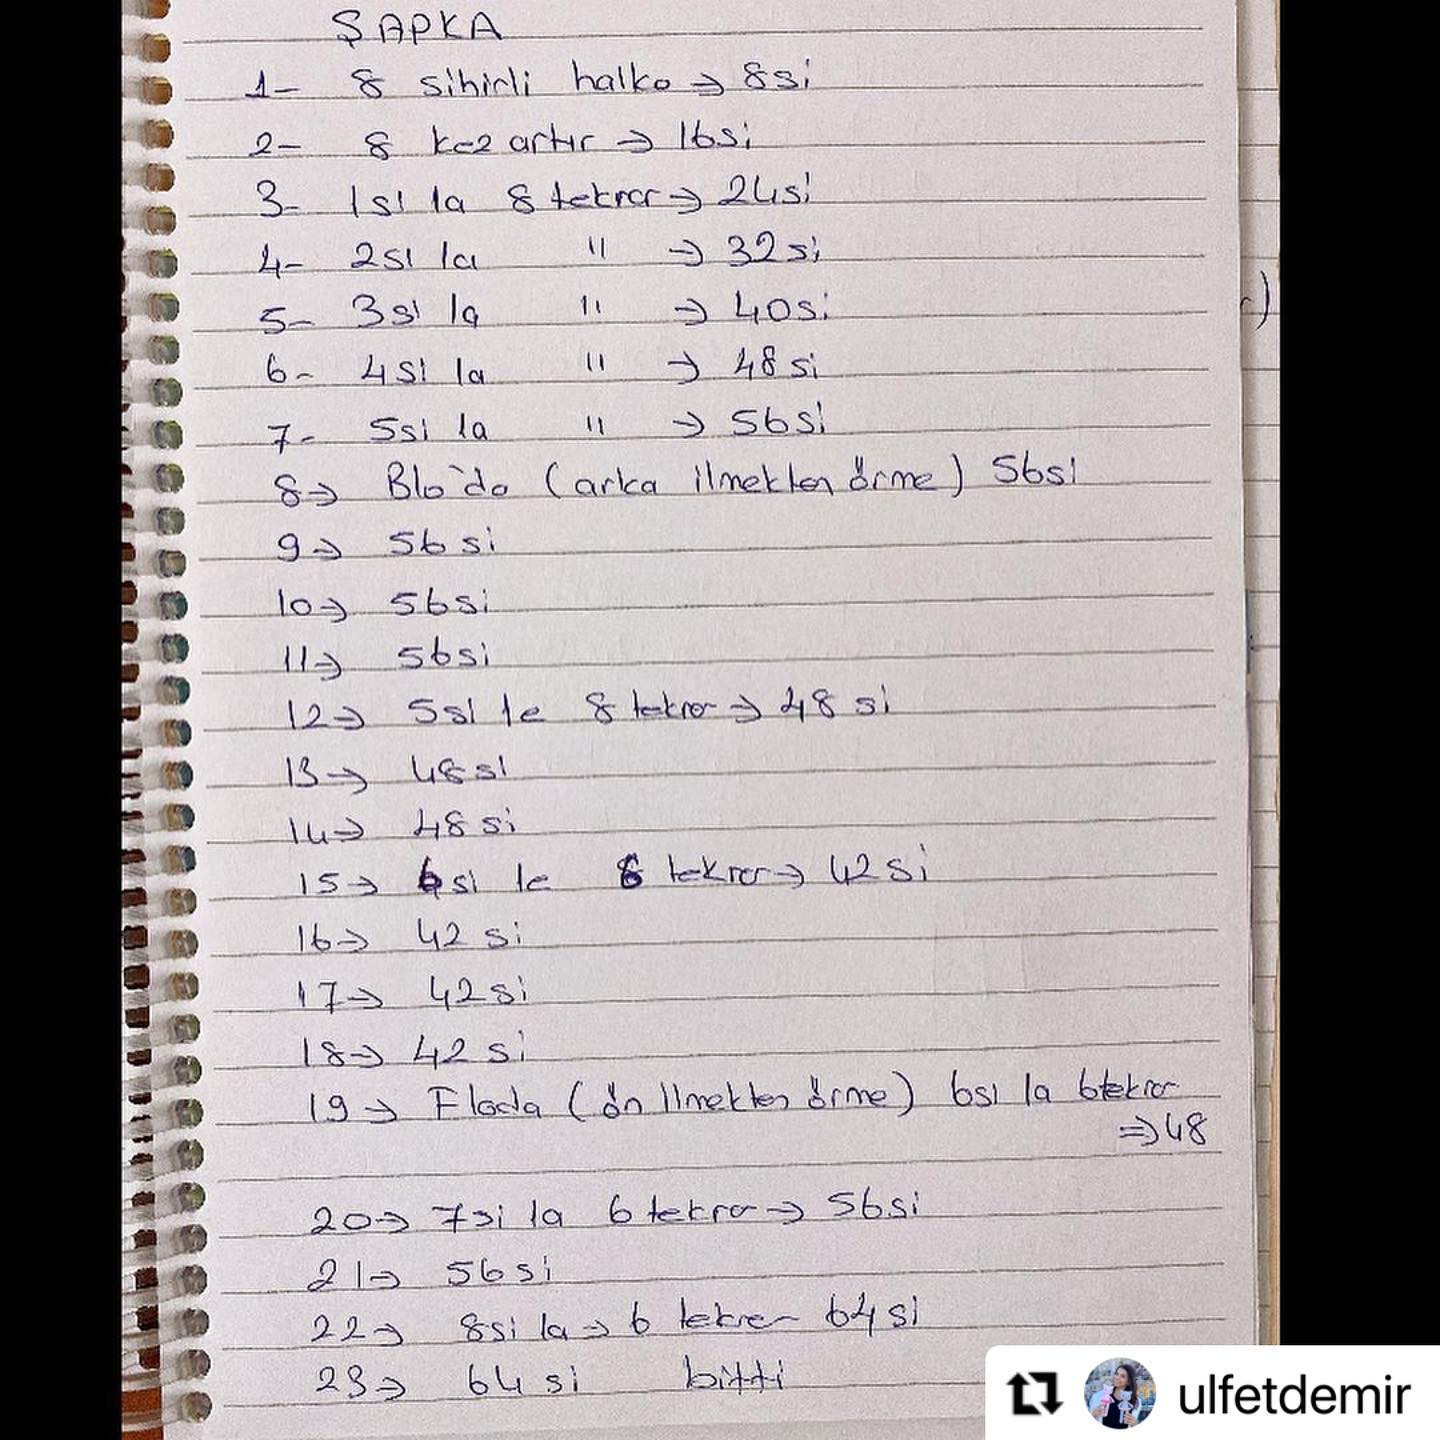 ŞAPKA
1- 8 sihirli halka → 8si
2- 8 kez artır → 16si
3- 1si 1a 8 tekrar → 24si
4- 2si 1a " → 32si
5- 3si 1a " → 40si
6- 4si 1a " → 48si
7- 5si 1a " → 56si
8→ Blo'da (arka ilmekten örme) 56si
9→ 56si
10→ 56si
11→ 56si
12→ 5si 1e 8 tekrar → 48si
13→ 48si
14→ 48si
15→ si 1e 6 tekrar → 42si
16→ 42si
17→ 42si
18→ 42si
19→ Floda (ön ilmekten örme) 6si 1a 6tekrar
⇒ 48
20→ 7si 1a 6 tekrar → 56si
21→ 56si
22→ 8si 1a → 6 tekrar 64si
23→ 64si bitti
ulfetdemir